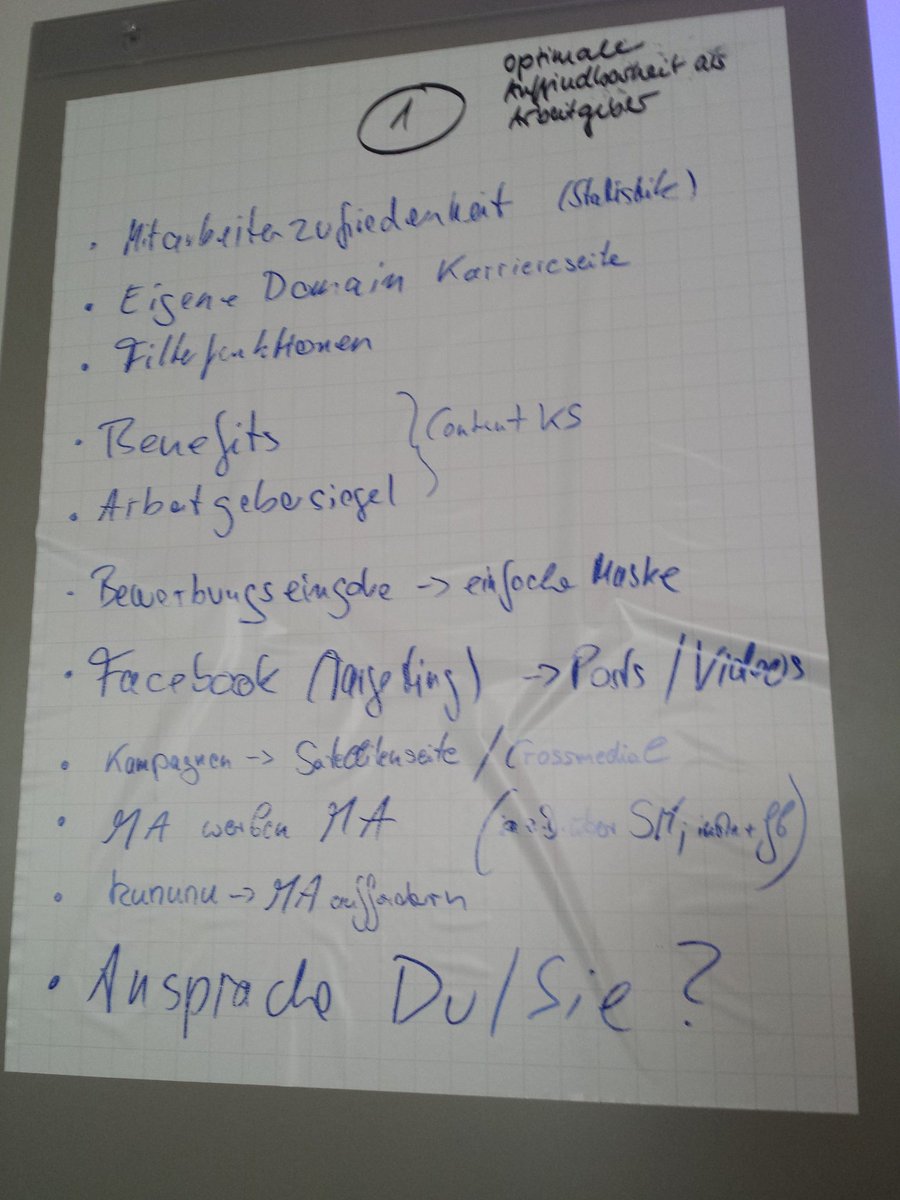 1
optimale
Auffindbarkeit als
Arbeitgeber
· Mitarbeiterzufriedenheit (Statistik)
· Eigene Domain Karriereseite
· Filterfunktionen
· Benefits } Content KS
· Arbeitgebersiegel
· Bewerbungseingabe -> einfache Maske
· Facebook (Targeting) -> Posts / Videos
· Kampagnen -> Satellitenseite / Crossmedial
· MA werben MA ( über SM, + fb)
· kununu -> MA auffordern
· Ansprache Du/Sie?